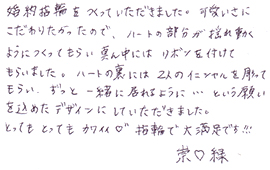 婚約指輪をつくっていただきました。可愛いさに
こだわりたかったので、ハートの部分が揺れ動く
ようにつくってもらい真ん中にはリボンを付けて
もらいました。ハートの裏には2人のイニシャルを彫って
もらい、ずっと一緒に居れるように…という願い
を込めたデザインにしていただきました。
とってもとってもカワイイ♡指輪で大満足です!!!
崇♡緑